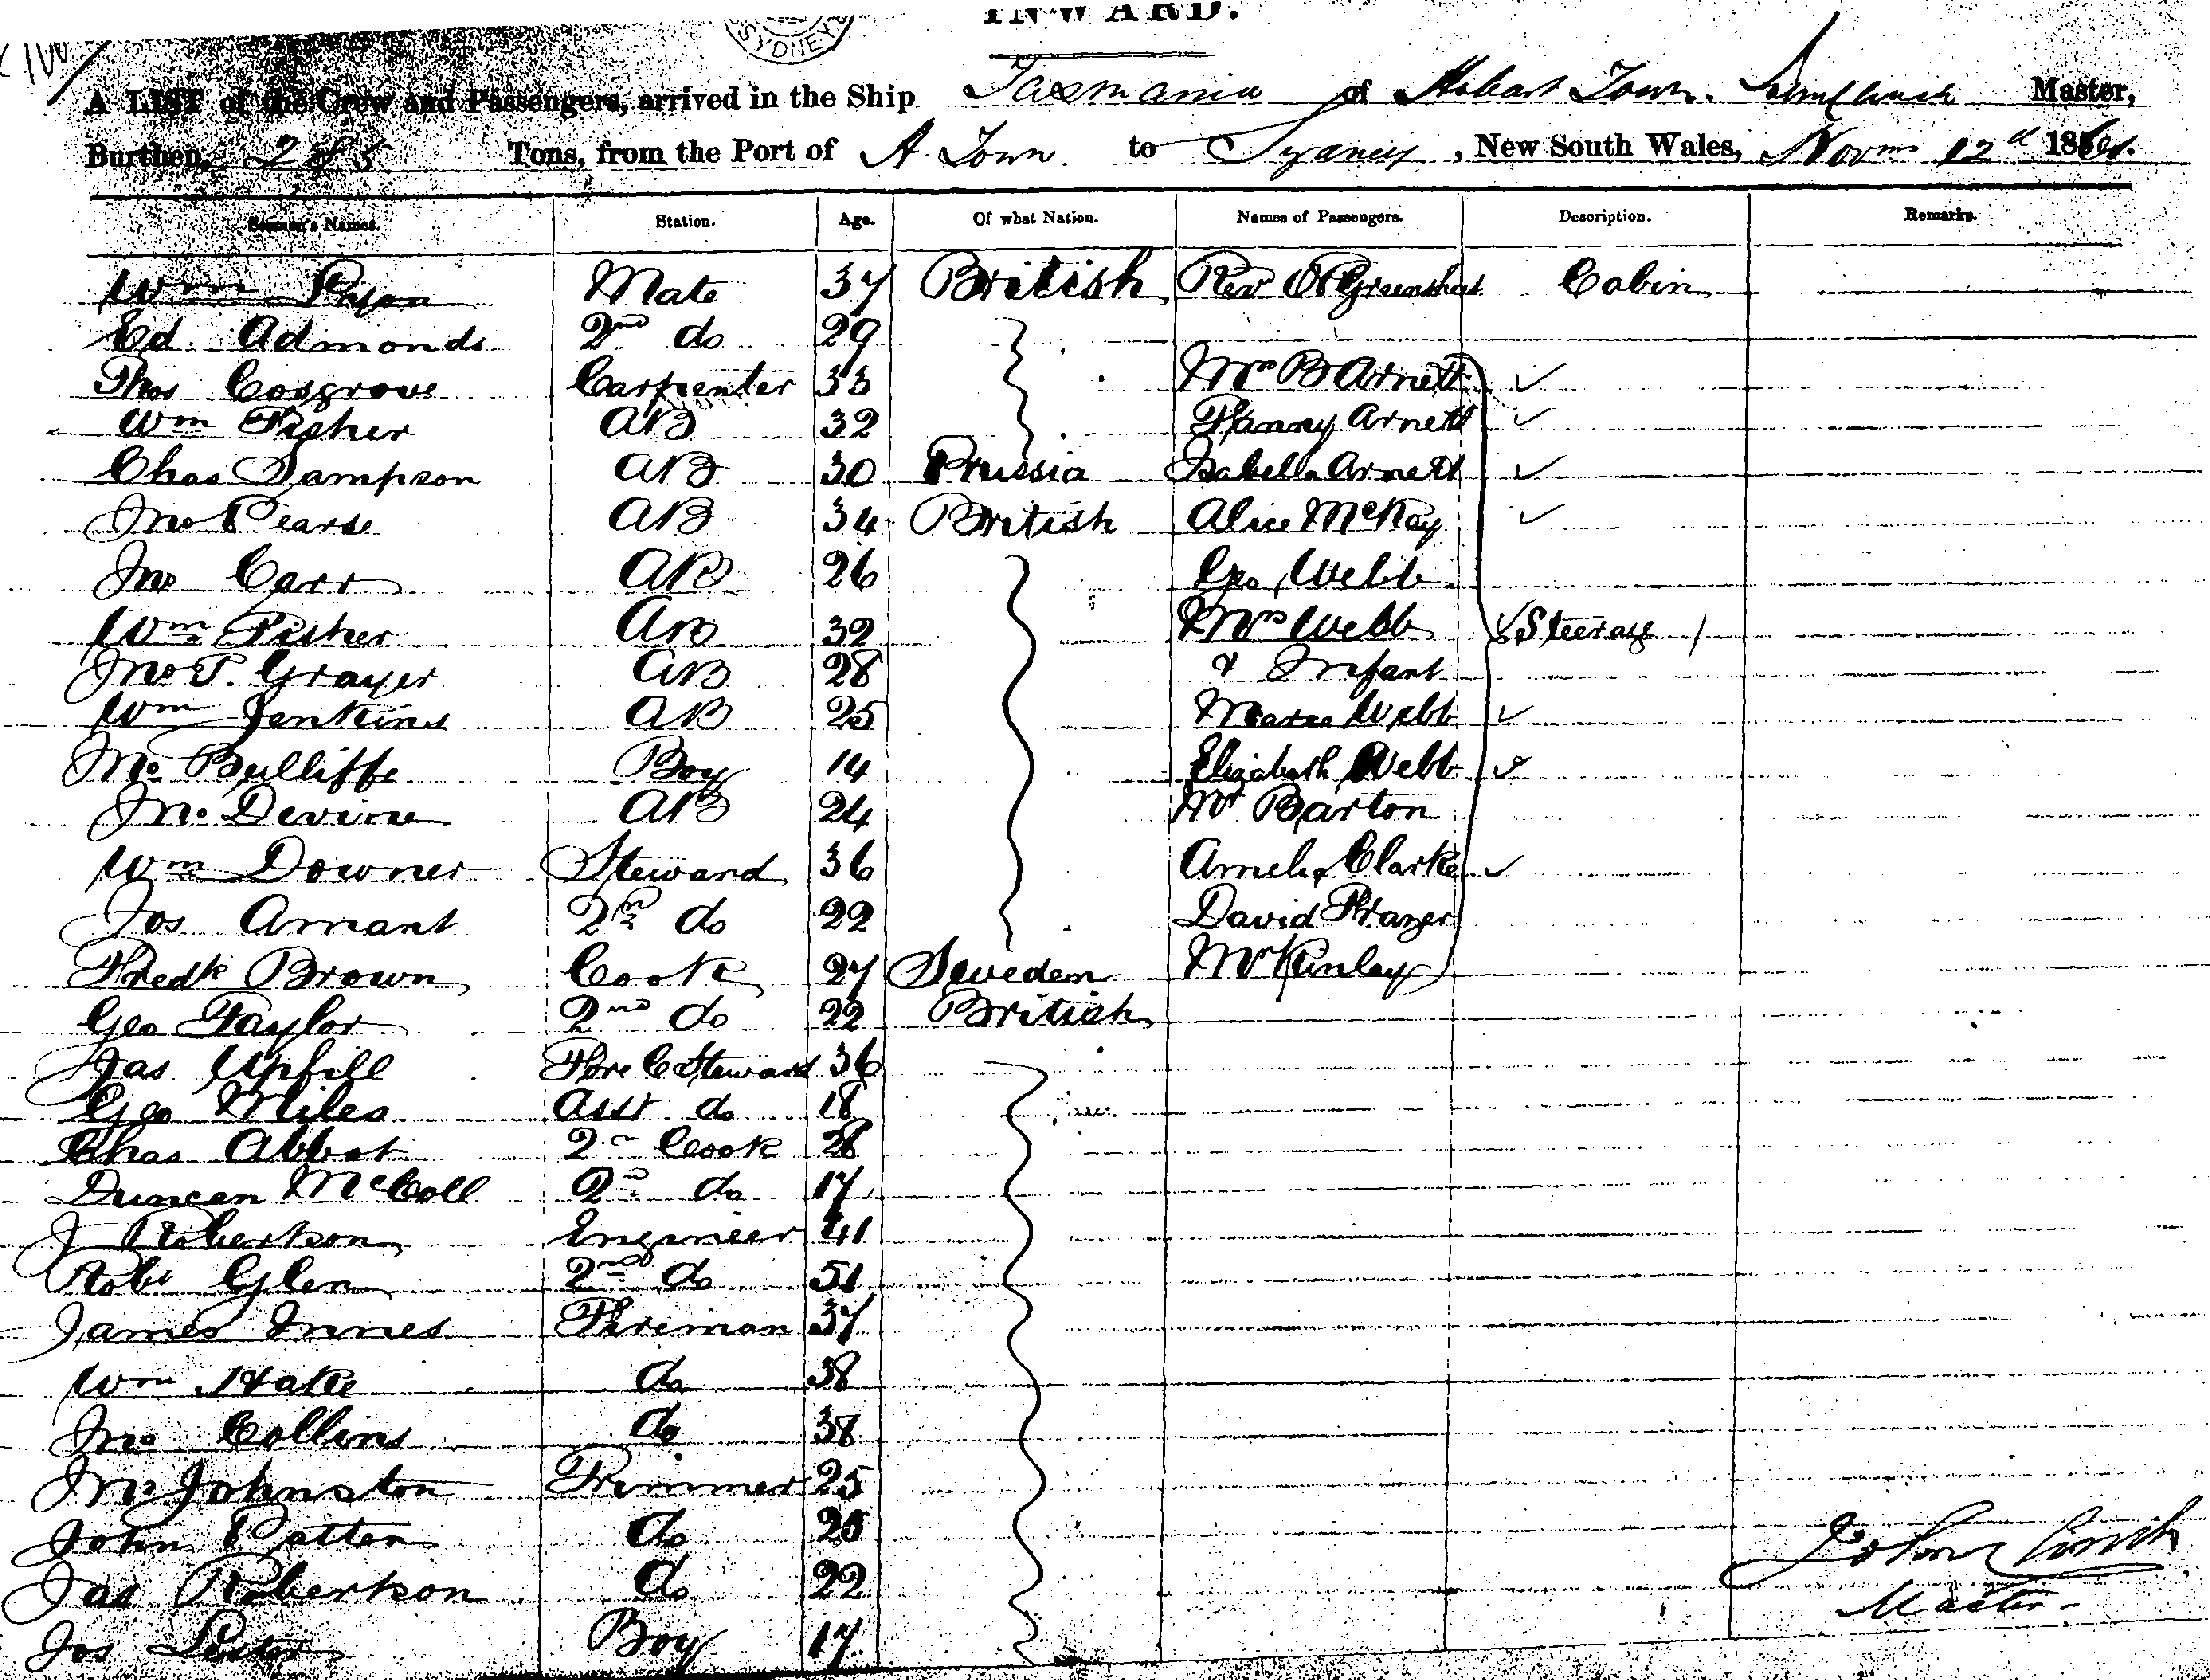 INWARD.
SYDNEY
A LIST of the Crew and Passengers, arrived in the Ship Tasmania of Hobart Town. John Clinch Master,
Burthen, 285 Tons, from the Port of H. Town to Sydney, New South Wales, Novm 12th 186
Seamen's Names. Station. Age. Of what Nation. Names of Passengers. Description. Remarks.
Wm Mate 37 British Rev Cabin
Ed Admonds 2nd do 29
Thos Cosgrove Carpenter 33 Mrs B Arnett
Wm Fisher AB 32 Fanny Arnett
Chas Sampson AB 30 Prussia Isabella Arnett
Jno Pearse AB 34 British Alice McKay
Jno Carr AB 26 Geo Webb
Wm Fisher AB 32 Mrs Webb Steerage
Jno T. Grayer AB 28 & Infant
Wm Jenkins AB 25 Webb
Bulliffe Boy 14 Elizabeth Webb
Jno Devine AB 24 Mr Barton
Wm Downer Steward 36 Amelia Clarke
Jos Arnant 2nd do 22 David Frazer
Fredk Brown Cook 27 Sweden McKinlay
Geo Taylor 2nd do 22 British
Jas Uphill Fore C Steward 36
Geo Miles Asst do 18
Chas Abbot 2nd Cook 28
Duncan McColl 2nd do 17
J Robertson Engineer 41
Robt Glen 2nd do 51
James Innes Fireman 37
Wm do 38
Jno Collins do 38
Jno Johnston Trimmer 25
John Patten do 25
Jas Robertson do 22
Jos Boy 17
John Clinch
Master.